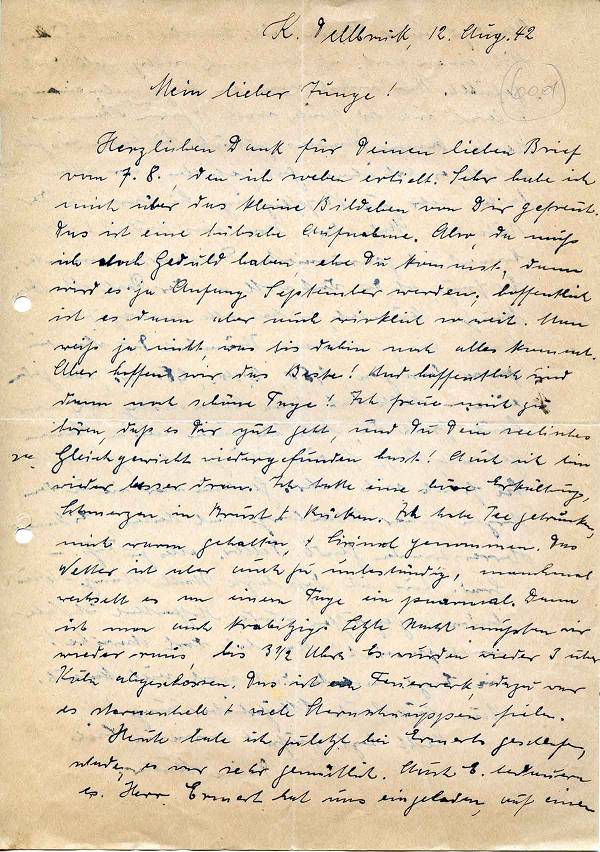 K. Dellbrück, 12. Aug. 42
Mein lieber Junge!
Herzlichen Dank für Deinen lieben Brief
vom 7. 8., den ich soeben erhielt. Sehr habe ich
mich über das kleine Bildchen von Dir gefreut.
Das ist eine hübsche Aufnahme. Also, da muß
ich doch Geduld haben, ehe Du kommst, denn
wird es ja Anfang September werden, hoffentlich
ist es dann aber auch wirklich so weit. Man
weiß ja nicht, was bis dahin noch alles kommt.
Aber hoffen wir das Beste! Und hoffentlich sind
dann noch schöne Tage! Ich freue mich zu
hören, daß es Dir gut geht, und Du Dein seelisches
Gleichgewicht wiedergefunden hast! Auch ich bin
wieder besser dran. Ich hatte eine böse Erkältung,
Schmerzen in Brust + Rücken. Ich habe Tee getrunken,
mich warm gehalten, + genommen. Das
Wetter ist aber auch zu unbeständig, manchmal
wechselt es an einem Tage ein paarmal. Dann
ist man auch Letzte Nacht mußten wir
wieder raus, bis 3 1/2 Uhr. Es wurden wieder 3 über
Köln abgeschossen. Das ist ein Feuerwerk, dazu war
es sternenhell + viele Sternschnuppen fielen.
Heute habe ich zuletzt bei Ermerts geschlafen,
es war sehr gemütlich. Auch E. bedauern
es. Herr Ermert hat uns eingeladen, auf einen